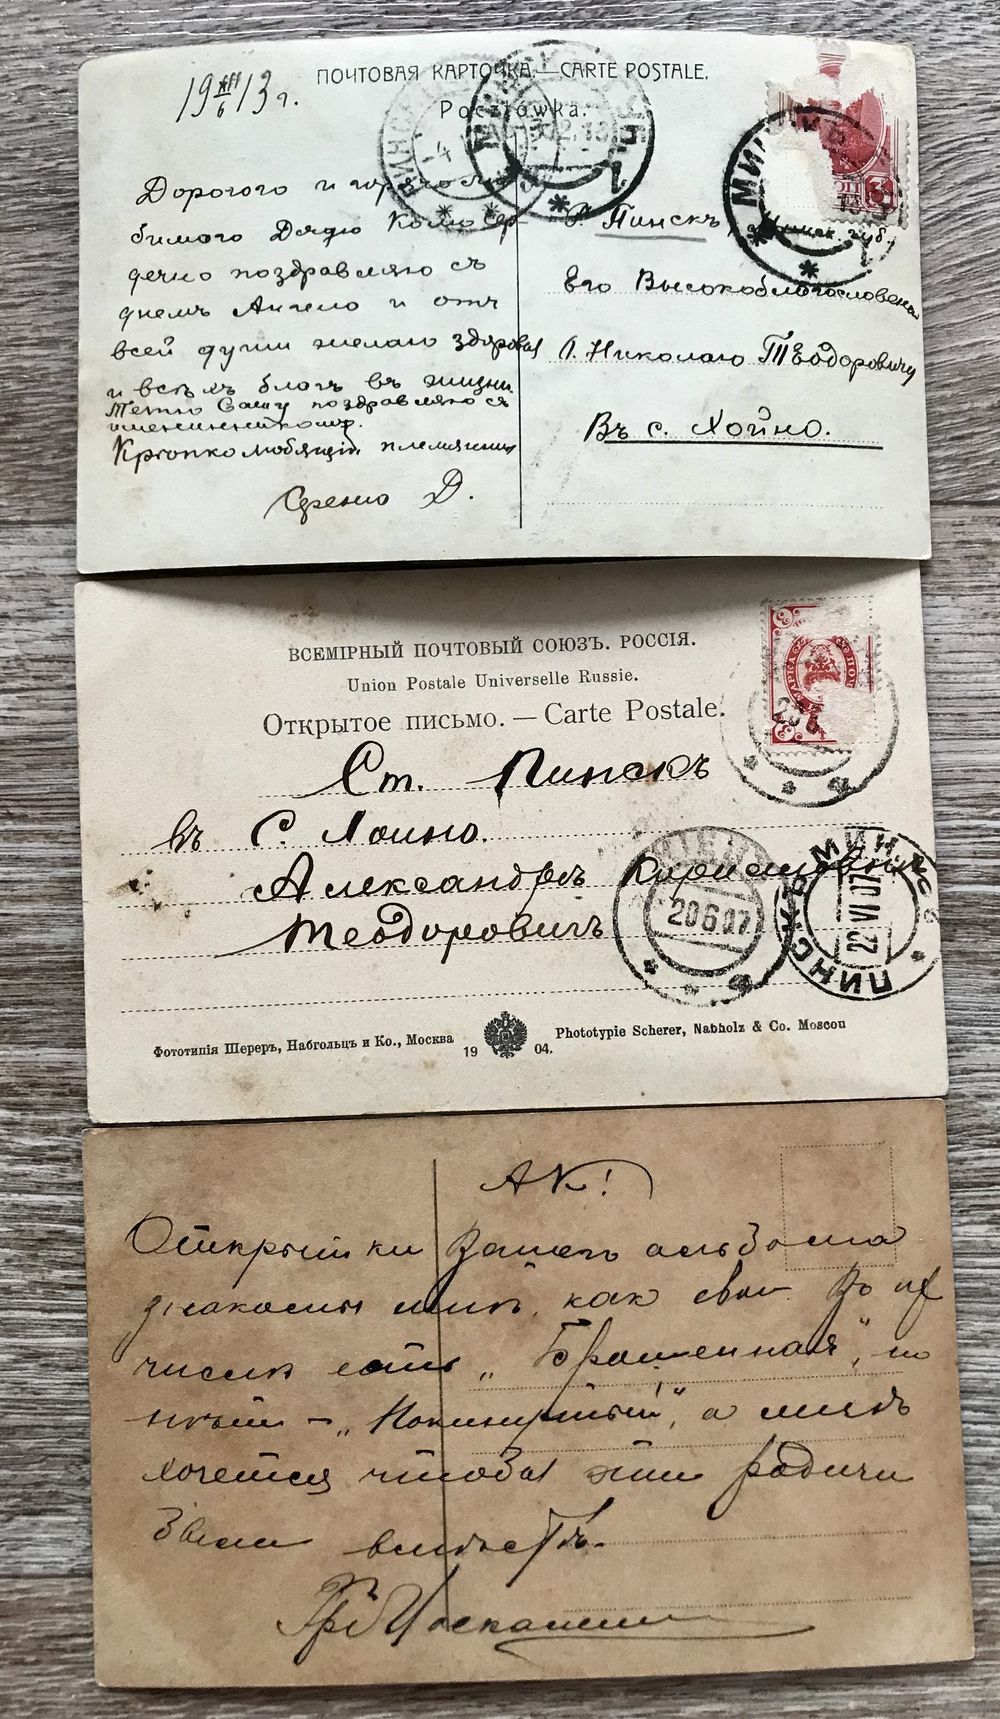 19 XII/6 13 г.
ПОЧТОВАЯ КАРТОЧКА.—CARTE POSTALE.
Pocztówka.
Дорогого и горячо лю-
бимого Дядю Колю сер-
дечно поздравляю съ
днемъ Ангела и отъ
всей души желаю здоровья
и всѣхъ благъ въ жизни.
Тетю Сашу поздравляю съ
именинникомъ.
Крѣпко любящій племянникъ
Д.
г. Пинскъ, Минск. губ.
Его Высокоблагословенію
О. Николаю Теодоровичу
Въ с. Хойно.
МИН
ВСЕМІРНЫЙ ПОЧТОВЫЙ СОЮЗЪ. РОССІЯ.
Union Postale Universelle Russie.
Открытое письмо. — Carte Postale.
Ст. Пинскъ
въ С. Хоино.
Александрѣ
Теодоровичъ
МАРКА
20 6 07
ПИНСКЪ МИНСК
22 VI 07
Фототипія Шереръ, Набгольцъ и Ко., Москва 1904. Phototypie Scherer, Nabholz & Co. Moscou
АК!
Открытки Вашего альбома
знакомы мнѣ, как свои. Въ их
числѣ есть „Брошенная“,
„Покинутый“, а мнѣ
хочется чтобы эти
были вмѣстѣ.